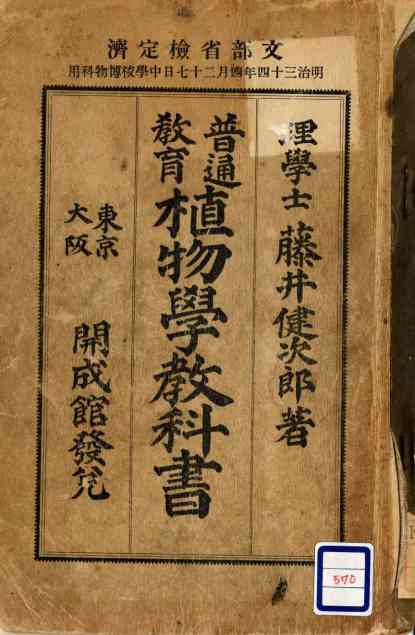 文部省檢定濟
明治三十四年四月二十七日中學校博物科用
理學士 藤井健次郎著
普通
教育
植物學教科書
東京
大阪
開成館發兌
570